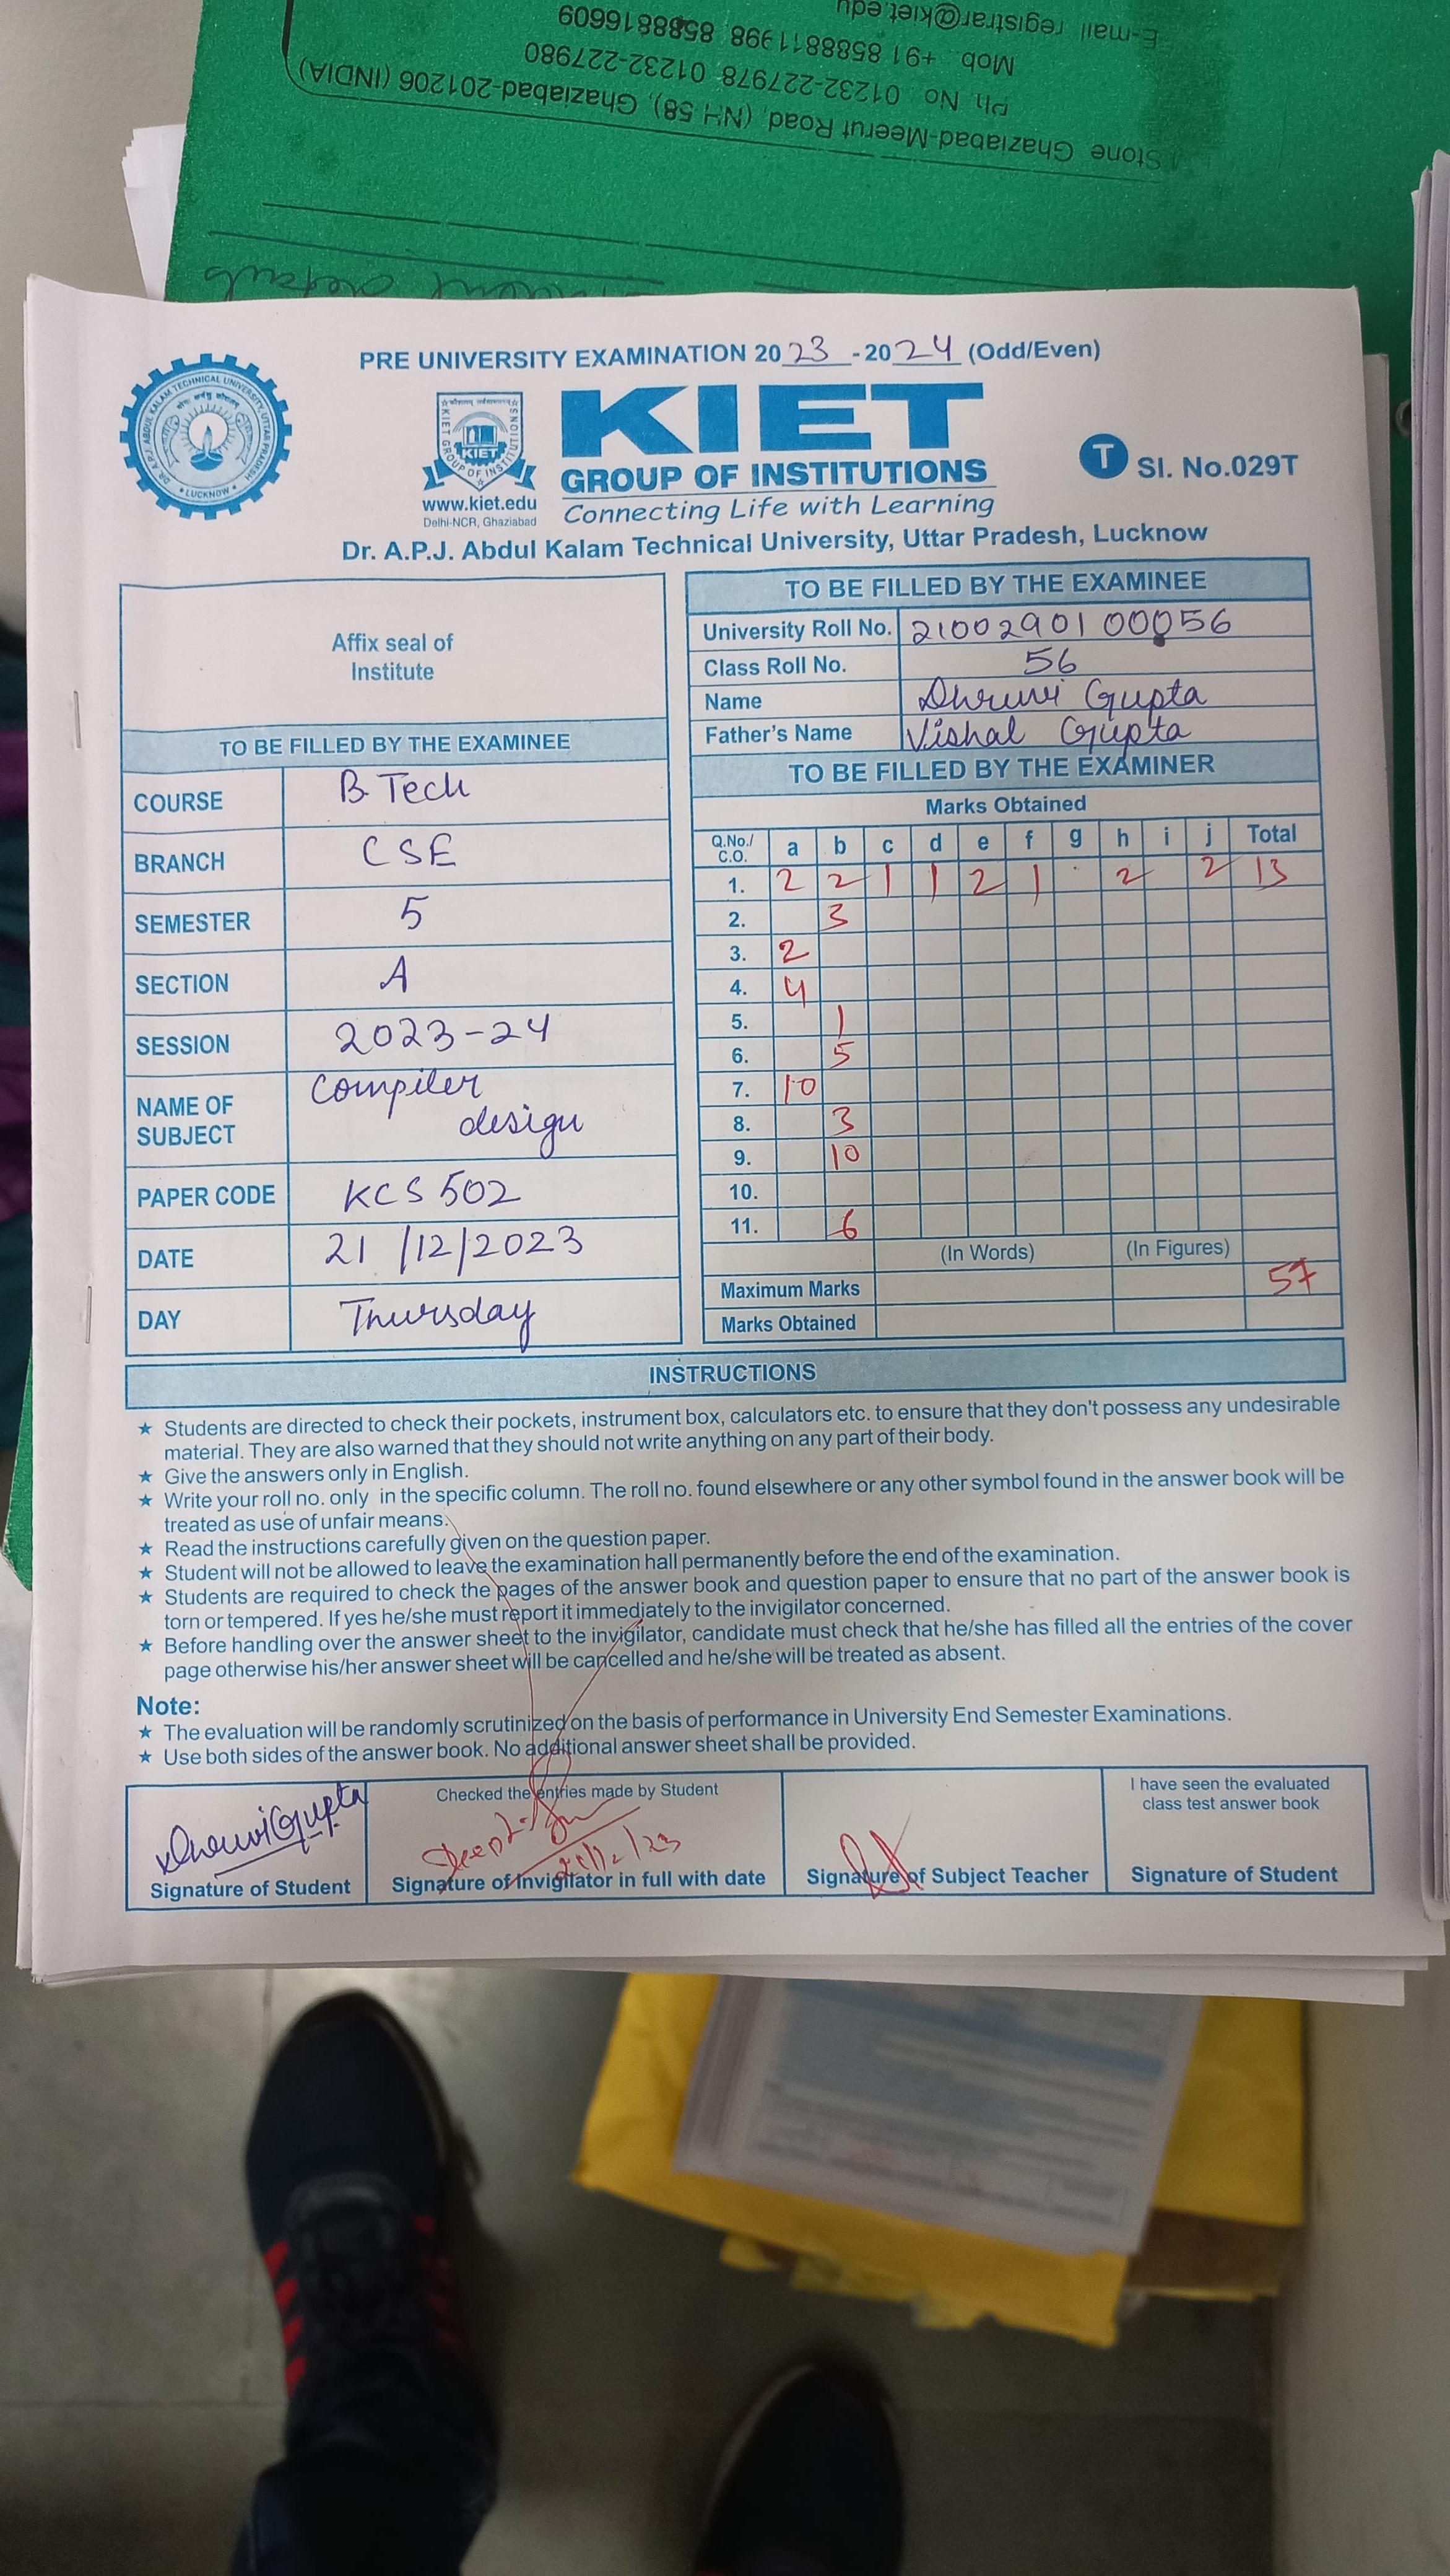 E-mail registrar@kiet.edu
Mob. +91 8588811998, 8588816609
Ph. No. 01232-227978, 01232-227980
Stone Ghaziabad-Meerut Road, (NH 58), Ghaziabad-201206 (INDIA)
PRE UNIVERSITY EXAMINATION 2023-2024 (Odd/Even)
DR. A.P.J. ABDUL KALAM TECHNICAL UNIVERSITY, UTTAR PRADESH
LUCKNOW
KIET GROUP OF INSTITUTIONS
KIET
www.kiet.edu
Delhi-NCR, Ghaziabad
KIET
GROUP OF INSTITUTIONS
Connecting Life with Learning
T Sl. No.029T
Dr. A.P.J. Abdul Kalam Technical University, Uttar Pradesh, Lucknow
Affix seal of
Institute
TO BE FILLED BY THE EXAMINEE
COURSE B.Tech
BRANCH CSE
SEMESTER 5
SECTION A
SESSION 2023-24
NAME OF SUBJECT Compiler design
PAPER CODE KCS 502
DATE 21/12/2023
DAY Thursday
TO BE FILLED BY THE EXAMINEE
University Roll No. 2100290100056
Class Roll No. 56
Name Dhruvi Gupta
Father's Name Vishal Gupta
TO BE FILLED BY THE EXAMINER
Marks Obtained
Q.No./C.O. a b c d e f g h i j Total
1. 2 2 1 1 2 1 2 2 13
2. 3
3. 2
4. 4
5. 1
6. 5
7. 10
8. 3
9. 10
10.
11. 6
(In Words) (In Figures)
Maximum Marks 57
Marks Obtained
INSTRUCTIONS
★ Students are directed to check their pockets, instrument box, calculators etc. to ensure that they don't possess any undesirable
material. They are also warned that they should not write anything on any part of their body.
★ Give the answers only in English.
★ Write your roll no. only in the specific column. The roll no. found elsewhere or any other symbol found in the answer book will be
treated as use of unfair means.
★ Read the instructions carefully given on the question paper.
★ Student will not be allowed to leave the examination hall permanently before the end of the examination.
★ Students are required to check the pages of the answer book and question paper to ensure that no part of the answer book is
torn or tempered. If yes he/she must report it immediately to the invigilator concerned.
★ Before handling over the answer sheet to the invigilator, candidate must check that he/she has filled all the entries of the cover
page otherwise his/her answer sheet will be cancelled and he/she will be treated as absent.
Note:
★ The evaluation will be randomly scrutinized on the basis of performance in University End Semester Examinations.
★ Use both sides of the answer book. No additional answer sheet shall be provided.
Dhruvi Gupta
Signature of Student
Checked the entries made by Student
21/12/23
Signature of Invigilator in full with date
Signature of Subject Teacher
I have seen the evaluated
class test answer book
Signature of Student